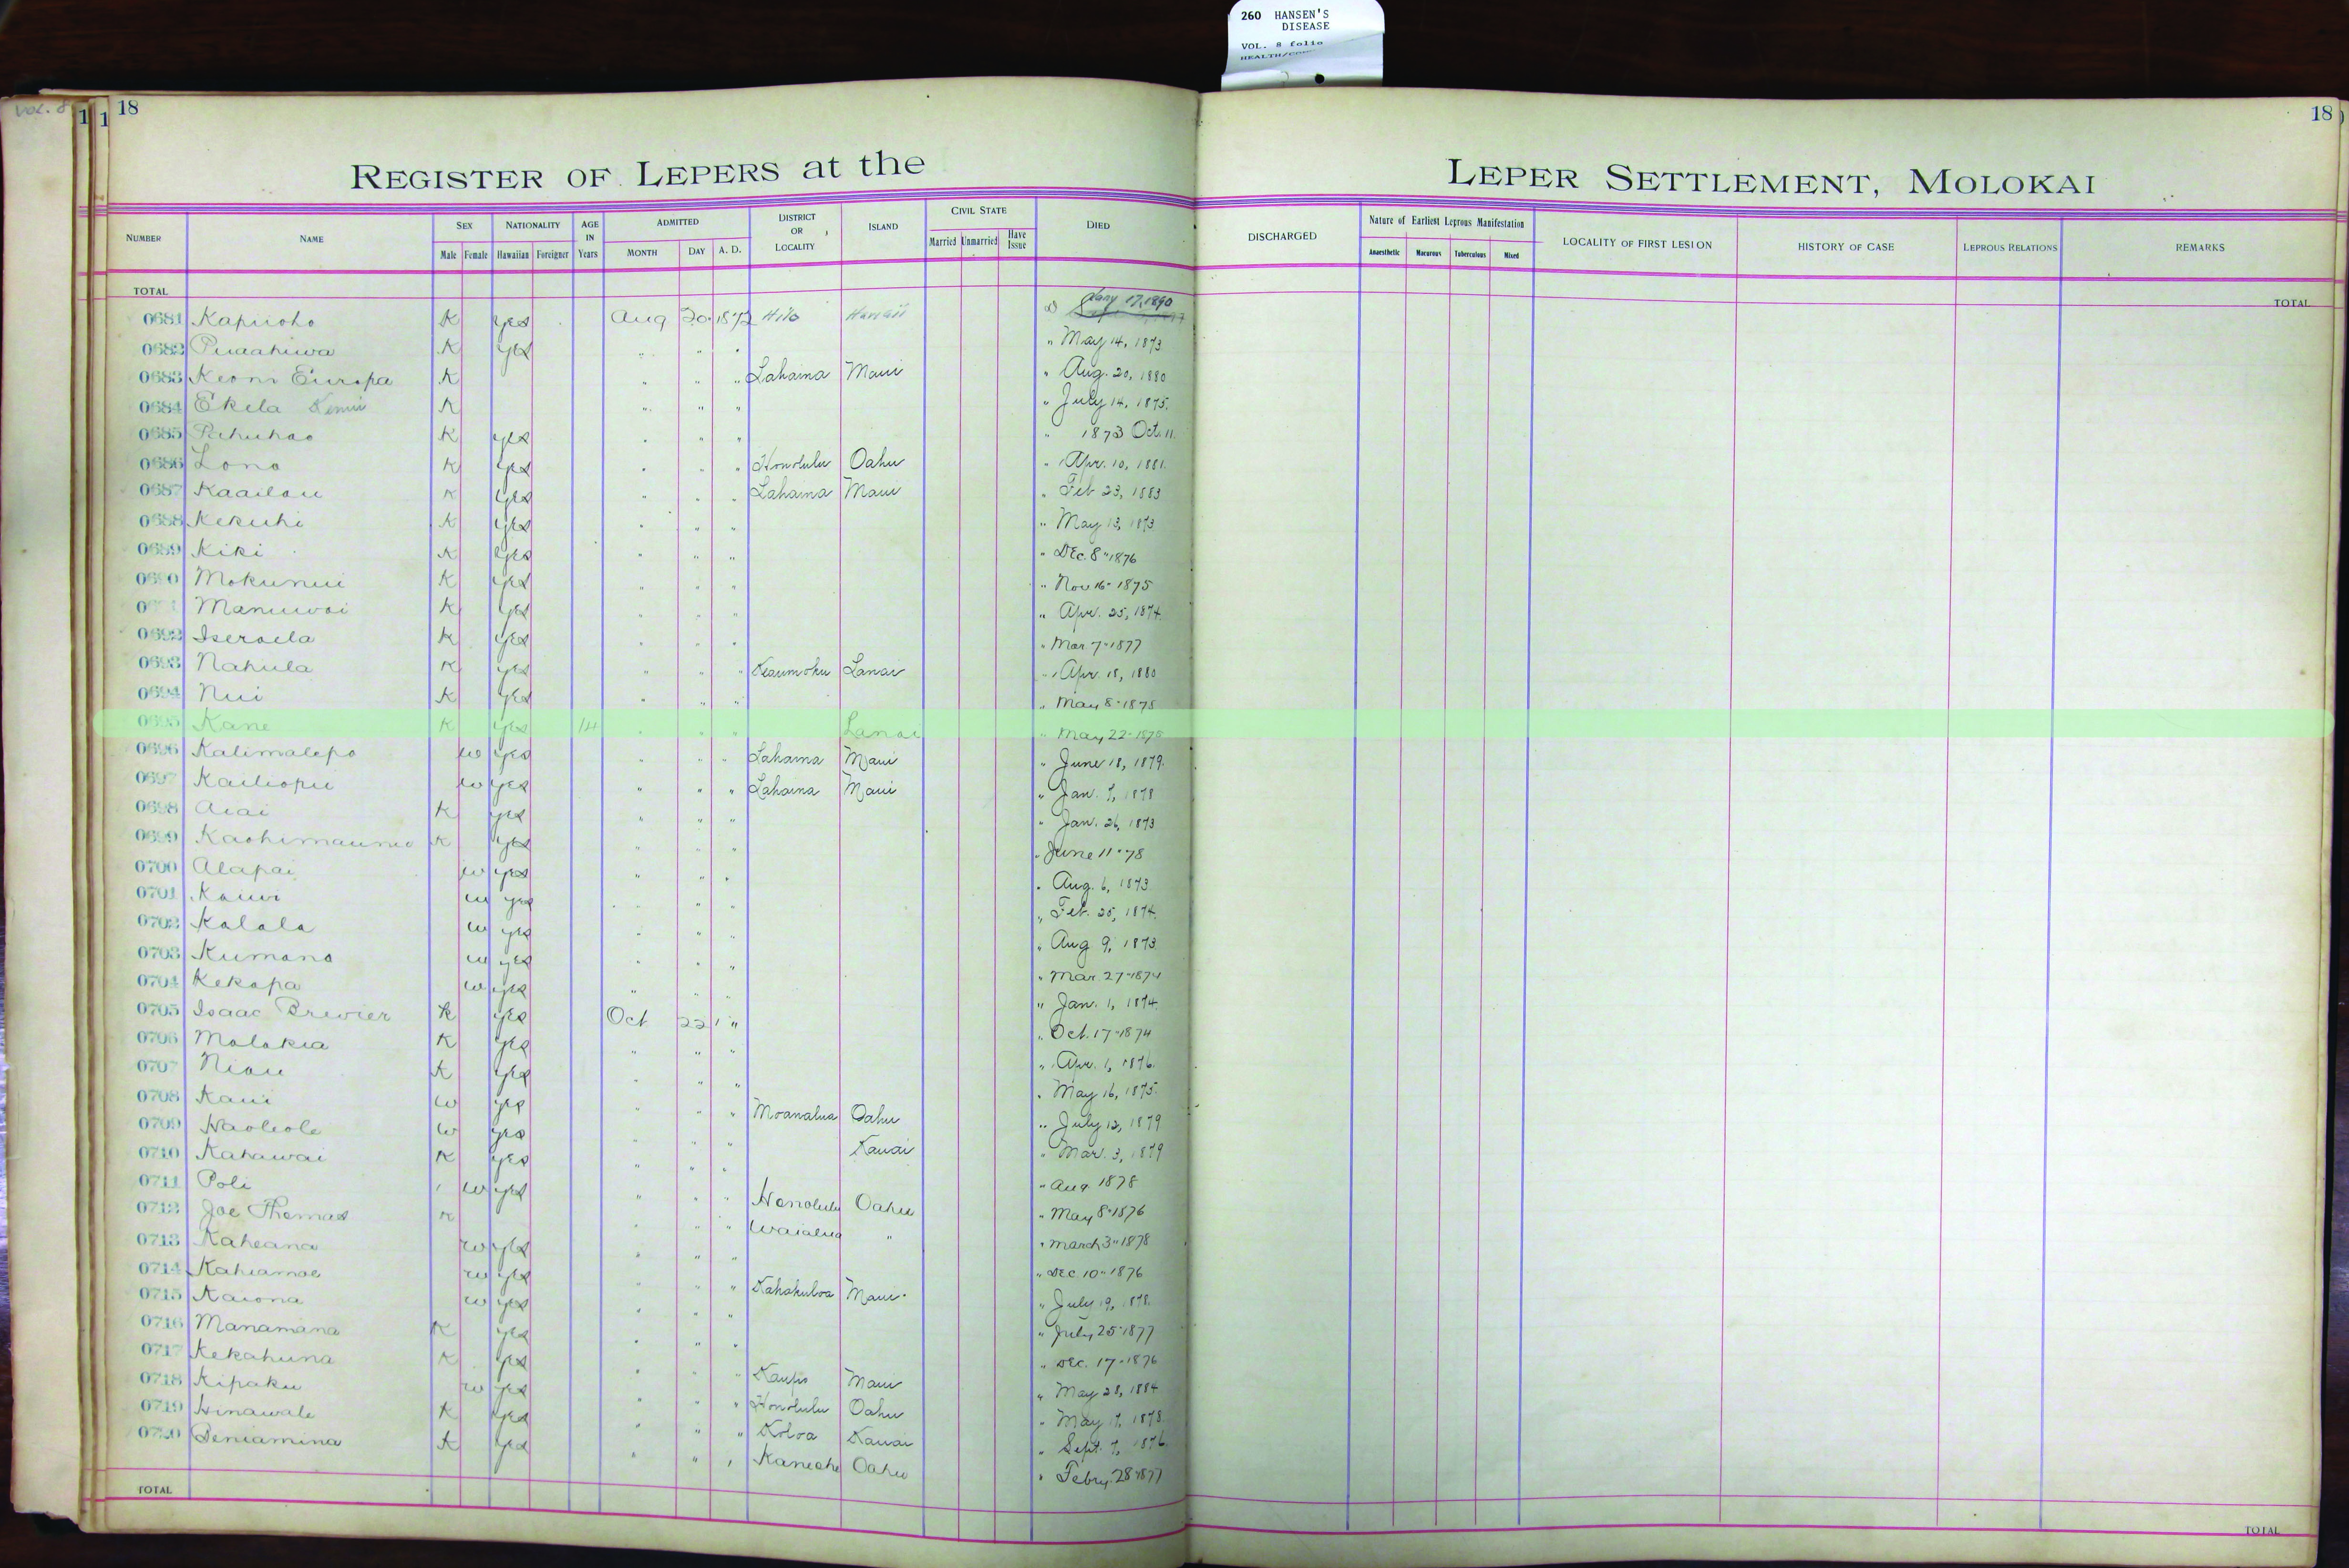 260 HANSEN'S
DISEASE
VOL. 8 folio
Vol. 8
1 1 18
18
REGISTER OF LEPERS at the LEPER SETTLEMENT, MOLOKAI
NUMBER NAME SEX Male Female NATIONALITY Hawaiian Foreigner AGE IN Years ADMITTED MONTH DAY A. D. DISTRICT OR LOCALITY ISLAND CIVIL STATE Married Unmarried Have Issue DIED DISCHARGED Nature of Earliest Leprous Manifestation Anaesthetic Tuberculous Mixed LOCALITY OF FIRST LESION HISTORY OF CASE LEPROUS RELATIONS REMARKS
TOTAL TOTAL
0681 Kapiioho K yes Aug 20 1872 Hilo Hawaii D Jany 17, 1890
0682 Puaahiwa K yes " " " " May 14, 1873
0683 Keoni Europa K " " " Lahaina Maui " Aug. 20, 1880
0684 Ekela K " " " " July 14, 1875.
0685 Pahuhao K yes " " " " 1873 Oct. 11.
0686 Lono K yes " " " Honolulu Oahu " Apr. 10, 1881.
0687 Kaailau K yes " " " Lahaina Maui " Feb 23, 1883
0688 Kekuhi K yes " " " " May 13, 1873
0689 Kiki K yes " " " " Dec. 8" 1876
0690 Mokunui K yes " " " " Nov 16" 1875
Manuwai K yes " " " " Apr. 25, 1874.
0692 Iseraela K yes " " " " Mar 7" 1877
0693 Nahula K yes " " " Keaumoku Lanai " Apr. 18, 1880
0694 Nui K yes " " " " May 8" 1878
0695 Kane K yes 14 " " " Lanai " May 22"
0696 Kalimalepo W yes " " " Lahaina Maui " June 18, 1879.
0697 Kailiopu W yes " " " Lahaina Maui " Jan. 7, 1878
0698 Aiai K yes " " " " Jan. 26, 1873
0699 K yes " " " " June 11" 78
0700 Alapai W yes " " " " Aug. 6, 1873
0701 Kauwi W yes " " " " Feb. 25, 1874.
0702 Kalala W yes " " " " Aug 9, 1873
0703 Kumano W yes " " " " Mar 27" 1874
0704 Kekapa W yes " " " " Jan. 1, 1874.
0705 Isaac Brewier K yes Oct 22 " " Oct. 17" 1874
0706 Molokia K yes " " " " Apr. 1, 1876.
0707 Niau K yes " " " " May 16, 1875.
0708 Kaui W yes " " " Moanalua Oahu " July 12, 1879
0709 Haoleole W yes " " " Kauai " Mar. 3, 1879
0710 Kahawai K yes " " " " Aug 1878
0711 Poli W yes " " " Honolulu Oahu " May 8" 1876
0712 Joe Thomas K " " " Waialua " " March 3" 1878
0713 Kaheana W yes " " " " Dec 10" 1876
0714 Kahiamoe W yes " " " Kahakuloa Maui " July 19, 1878.
0715 Kaiona W yes " " " " July 25" 1877
0716 Manamana K yes " " " " Dec. 17" 1876
0717 Kekahuna K yes " " " Kaupo Maui " May 28, 1884
0718 Kipaku W yes " " " Honolulu Oahu " May 17, 1878
0719 Hinawale K yes " " " Koloa Kauai " Sept. 7, 1876
0720 Beniamina K yes " " " Kaneohe Oahu " Febry. 28" 1877
TOTAL TOTAL